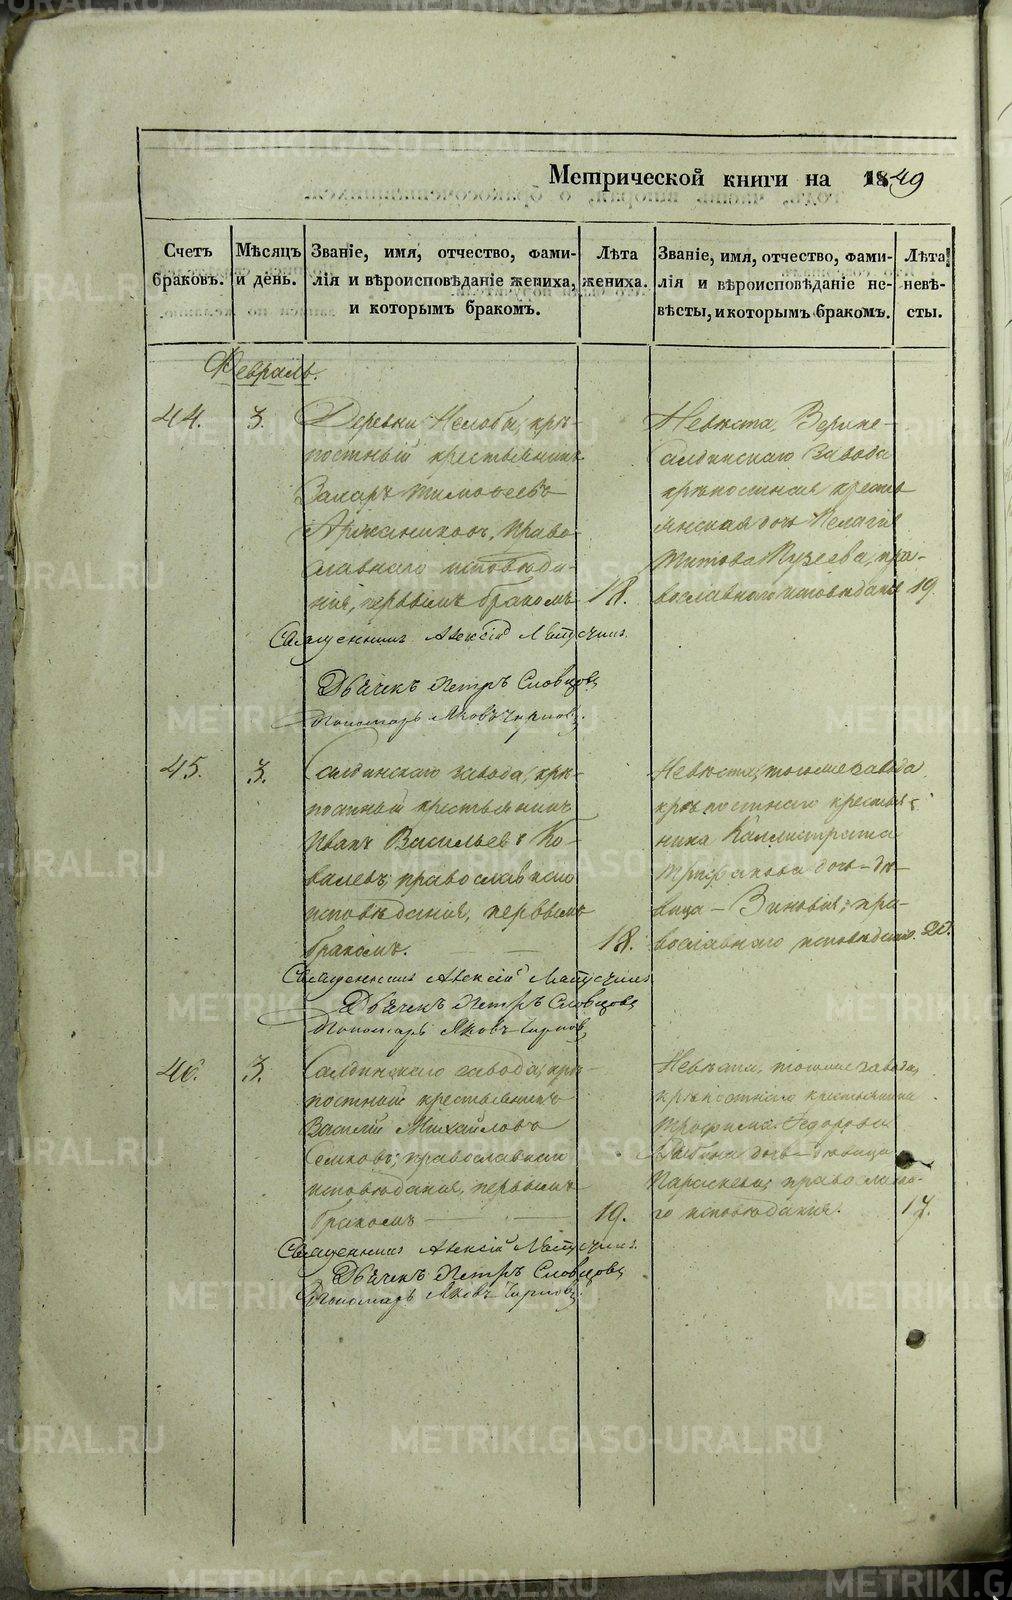 Метрической книги на 1849
Счетъ браковъ.
Мѣсяцъ и день.
Званіе, имя, отчество, фами-
лія и вѣроисповѣданіе жениха,
и которымъ бракомъ.
Лѣта жениха.
Званіе, имя, отчество, фами-
лія и вѣроисповѣданіе не-
вѣсты, и которымъ бракомъ.
Лѣта невѣ-
сты.
Февраль.
44.
3.
Деревни Нелобы, крѣ-
постный крестьянинъ
Захаръ Тимофеевъ
Аржаниковъ, право-
славнаго исповѣда-
нія, первымъ бракомъ
18.
Невѣста, Верхне-
салдинскаго завода
крѣпостная кресть
янская дочь Пелагія
Титова Пузеева, пра-
вославнаго исповѣданія
19.
Священникъ Алексій
Дьячекъ Петръ Словцовъ
Пономарь Яковъ
45.
3.
Салдинскаго завода, крѣ-
постный крестьянинъ
Иванъ Васильевъ Ко-
валевъ, православнаго
исповѣданія, первымъ
бракомъ.
18.
Невѣста, тогоже завода
крѣпостнаго крестья-
нина Каллистрата
Трифанова дочь - дѣ-
вица - Зиновія, пра-
вославнаго исповѣданія.
20.
Священникъ Алексій
Дьячекъ Петръ Словцовъ
Пономарь Яковъ
46.
3.
Салдинскаго завода, крѣ-
постный крестьянинъ
Василій Михайловъ
православнаго
исповѣданія, первымъ
бракомъ
19.
Невѣста, тогоже завода,
крѣпостнаго крестьянина
Трофима Федорова
дочь - дѣвица
Параскева, православна-
го исповѣданія.
17.
Священникъ Алексій
Дьячекъ Петръ Словцовъ
Пономарь Яковъ
METRIKI.GASO-URAL.RU